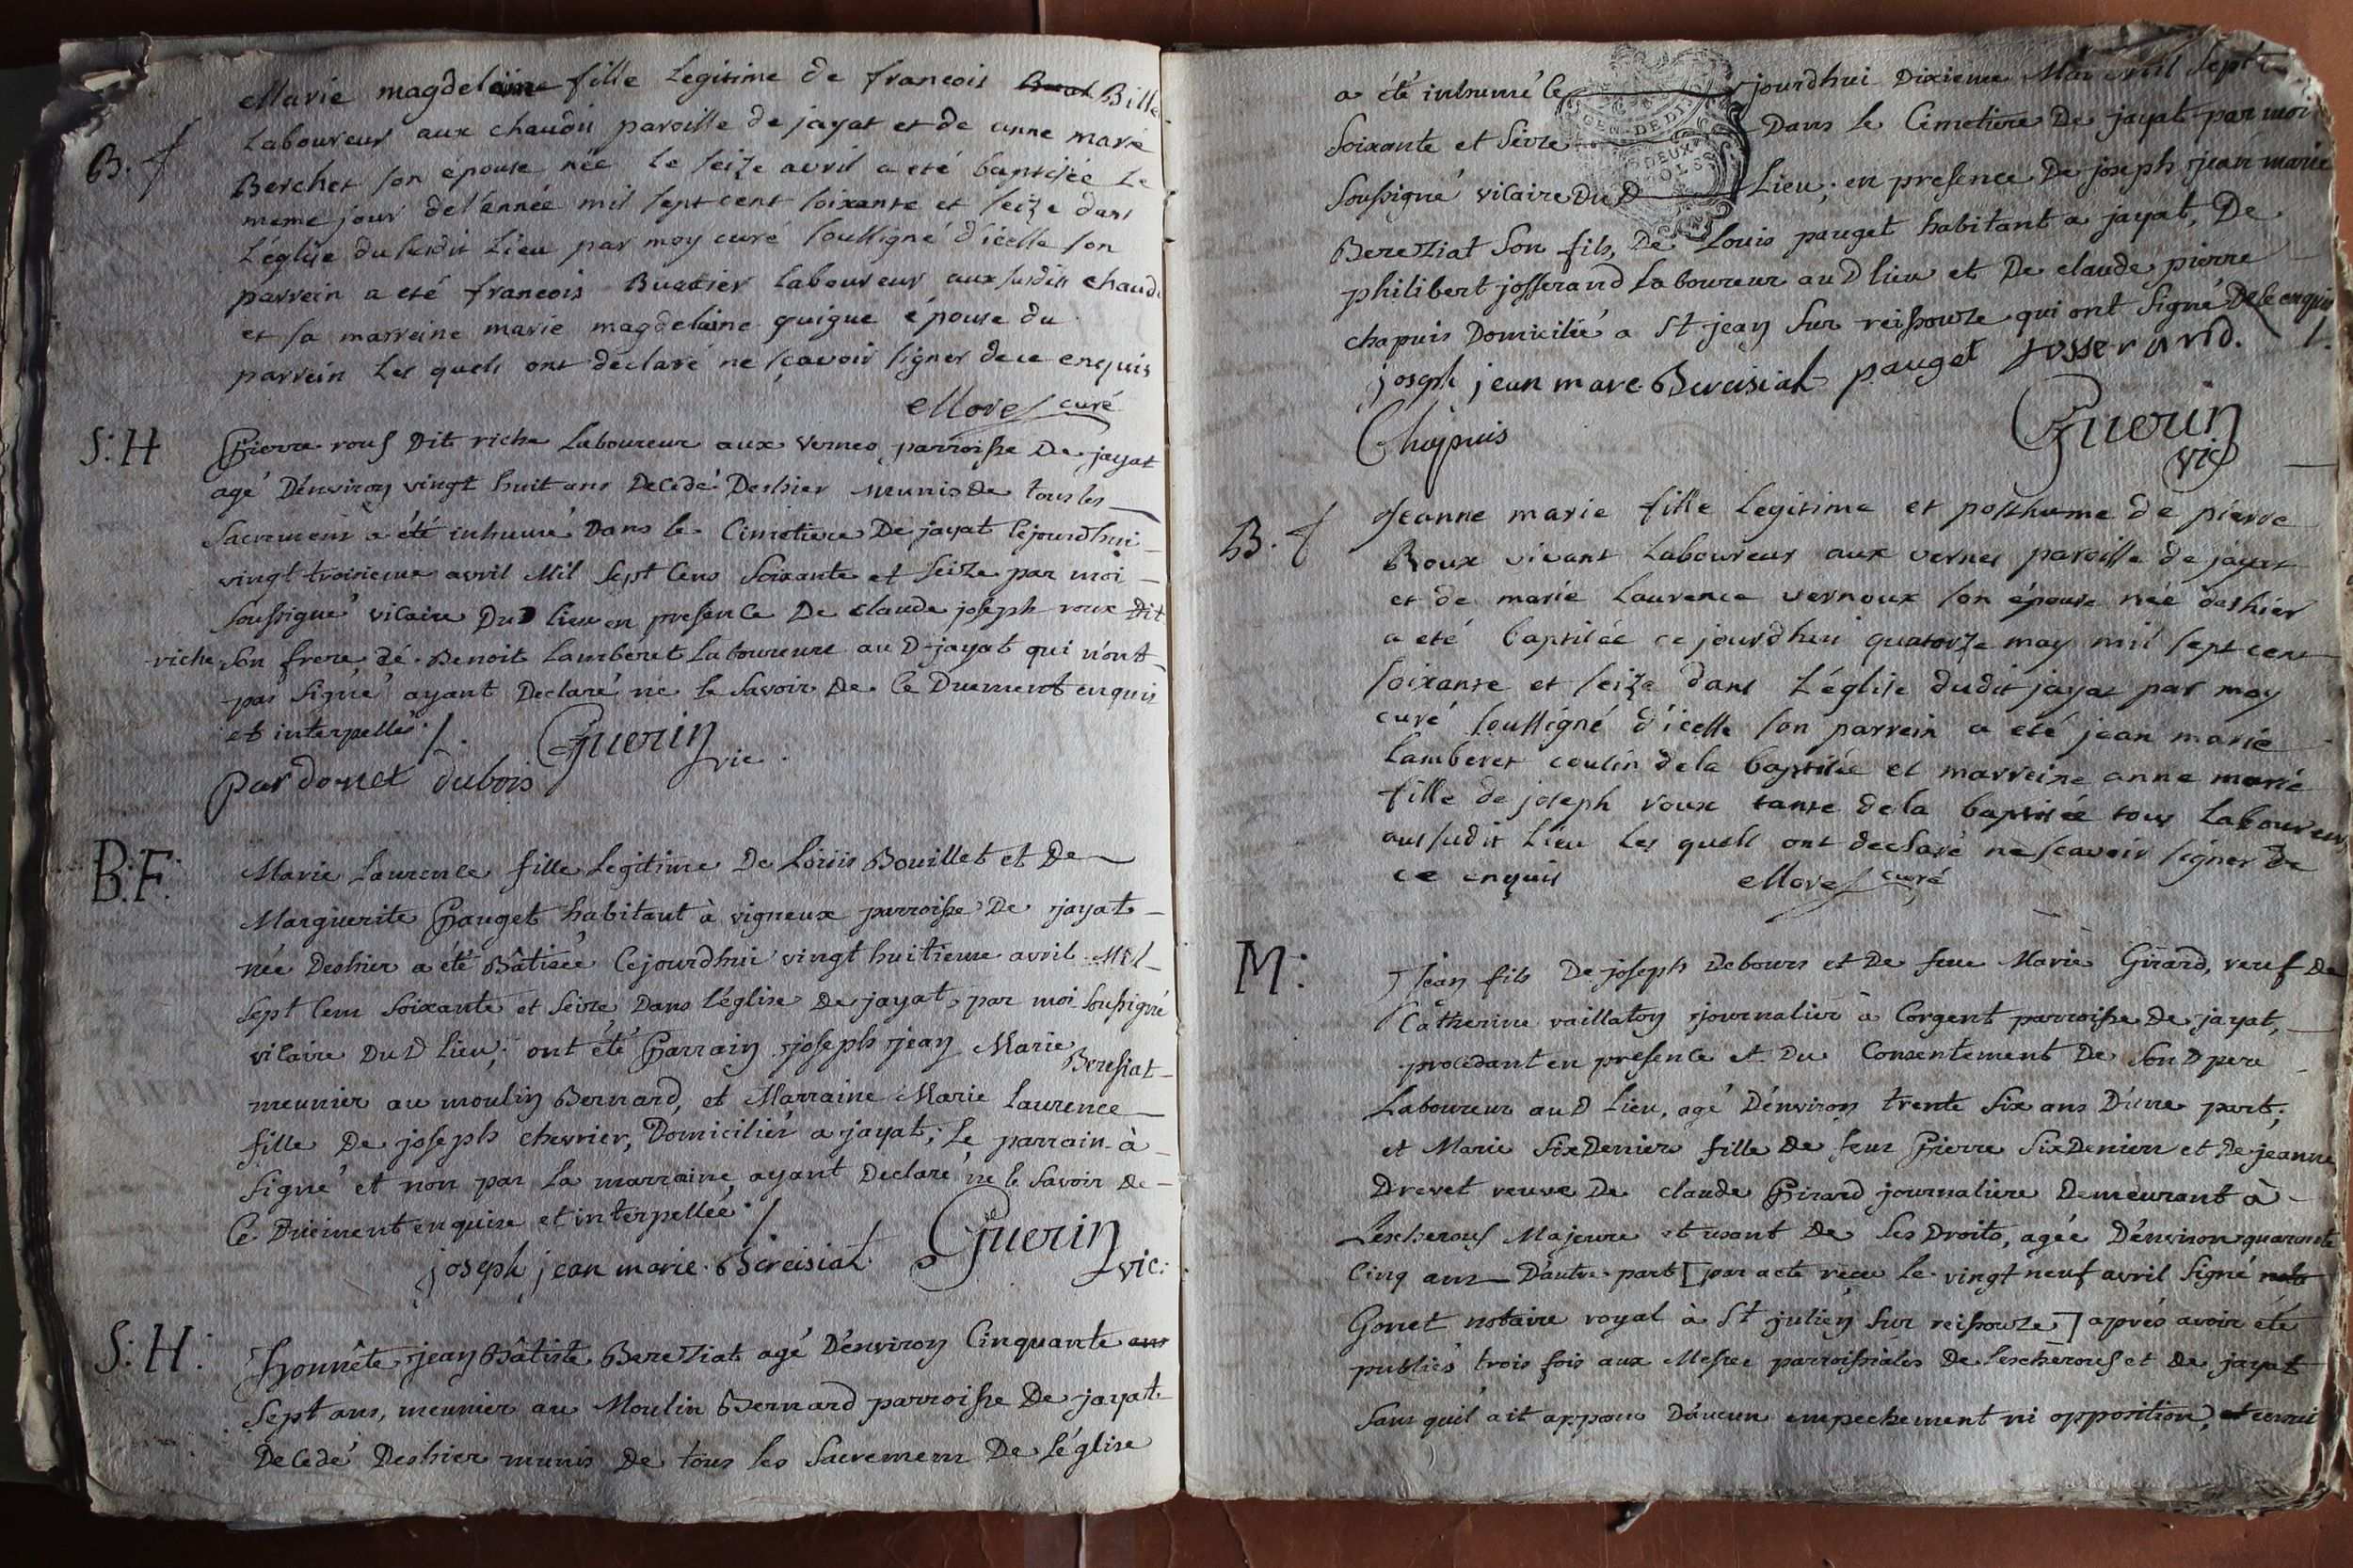 Marie magdelaine fille legitime de francois Bille
B. f
laboureur aux chaudii paroisse de jayat et de anne marie
Berchet son épouse née le seize avril a eté baptisée le
meme jour de l'année mil sept cent soixante et seize dans
l'église dususdit lieu par moy curé soussigné d'icelle son
parrein a eté francois Buatier laboureur aux susdits chaudi
et sa marreine marie magdelaine guigue épouse du
parrein les quels ont declaré ne sçavoir signer de ce enquis
Morel curé
S:H
Pierre rous Dit riche Laboureur aux vernes parroisse De jayat
agé D'environ vingt huit ans Decedé Deshier munis de tous les
Sacremens a été inhumé Dans le Cimetiere De jayat cejourdhui
vingt troisieme avril Mil Sept Cens Soixante et Seize par moi
soussigné vicaire DuD lieu en presence De claude joseph roux Dit
riche Son frere dé Benoit Lamberet Laboureur au D jayat qui n'ont
pas Signé ayant Declaré ne le Savoir De Ce Duement enquis
et interpellés /.
Guerin
vic.
Pardonet dubois
B:F:
Marie Laurence fille Legitime De Loüis Bouillet et De
Marguerite Pauget habitant à vigneux parroisse De jayat
née Deshier a été Bâtisée Cejourdhui vingt huitieme avril Mil
Sept Cens Soixante et Seize Dans l'église De jayat par moi Soussigné
vicaire Du D lieu; ont été Parrain joseph jean Marie
Beresiat
meunier au moulin Bernard, et Marraine Marie Laurence
fille De joseph chevrier, Domiciliés a jayat; Le parrain à
Signé et non pas La marraine ayant Declaré ne le Savoir De
Ce Duement enquise et interpellée /
joseph jean marie Bereisiat
Guerin
vic:
S:H:
Honnête jean Bâtiste Bereziat agé D'environ Cinquante ans
Sept ans, meunier au Moulin Bernard parroisse De jayat
Decedé Deshier munis De tous les Sacremens De l'église
a été inhumé le jourdhui Dixieme Mai mil Sept
Soixante et Seize Dans le Cimetiere De jayat par moi
GEN. DE DI
DEUX
SOLS
Soussigné vicaire Du D Lieu; en presence De joseph jean marie
Bereziat Son fils, De Louis pauget habitant a jayat, De
philibert josserand Laboureur au D lieu et De claude pierre
chapuis Domicilié a St jean Sur reissouze qui ont Signé De ce enquis
/.
joseph jean mare Bereisiat pauget josserand.
Chapuis
Guerin
vic
B. f
Jeanne marie fille legitime et posthume de pierre
Roux vivant laboureur aux vernes paroisse de jayat
et de marie laurence vernoux son épouse née deshier
a eté baptisée ce jourdhui quatorze may mil sept cent
soixante et seize dans l'église dudit jayat par moy
curé soussigné d'icelle son parrein a eté jean marie
lamberet cousin de la baptisée et marreine anne marie
fille de joseph roux tante de la baptisée tous laboureurs
aussudit lieu les quels ont declaré ne sçavoir signer de
ce enquis
Morel curé
M:
Jean fils De joseph Debourn et De feue Marie Girard, veuf De
Catherine vaillaton journalier à Corgent parroisse De jayat,
procedant en presence et Du Consentement De Son D pere
Laboureur au D Lieu, agé D'environ trente Six ans D'une part;
et Marie SixDenier fille De feu Pierre SixDenier et De jeanne
Drevet veuve De claude Pirard journaliere Demeurant à
Lescherous Majeure et usant De Ses Droits, agée D'environ quarante
Cinq ans D'autre part [par acte recu le vingt neuf avril Signé
Gonet notaire royal à St julien Sur reissouze] aprés avoir été
publiés trois fois aux Messes parroissiales De Lescherous et De jayat
Sans quil ait apparu D'aucun empechement ni opposition,